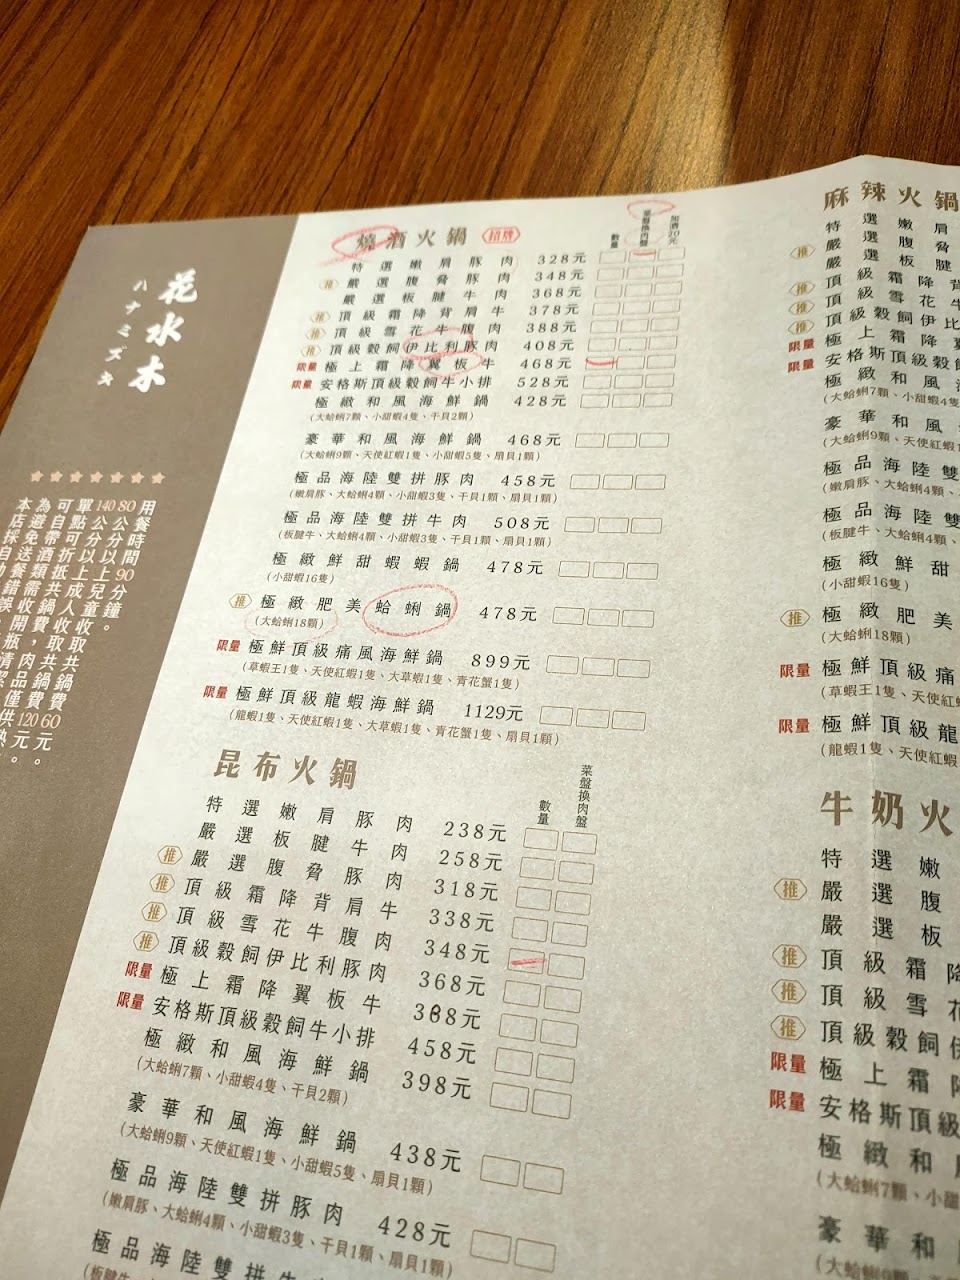 花水木
ハナミズキ
燒酒火鍋 招牌
數量 菜盤換肉盤 加酒20元
特選嫩肩豚肉 328元
推 嚴選腹脅豚肉 348元
嚴選板腱牛肉 368元
推 頂級霜降背肩牛 378元
推 頂級雪花牛腹肉 388元
推 頂級穀飼伊比利豚肉 408元
限量 極上霜降翼板牛 468元
限量 安格斯頂級穀飼牛小排 528元
極緻和風海鮮鍋 428元
(大蛤蜊7顆、小甜蝦4隻、干貝2顆)
豪華和風海鮮鍋 468元
(大蛤蜊9顆、天使紅蝦1隻、小甜蝦5隻、扇貝1顆)
極品海陸雙拼豚肉 458元
(嫩肩豚、大蛤蜊4顆、小甜蝦3隻、干貝1顆、扇貝1顆)
極品海陸雙拼牛肉 508元
(板腱牛、大蛤蜊4顆、小甜蝦3隻、干貝1顆、扇貝1顆)
極緻鮮甜蝦蝦鍋 478元
(小甜蝦16隻)
推 極緻肥美蛤蜊鍋 478元
(大蛤蜊18顆)
限量 極鮮頂級痛風海鮮鍋 899元
(草蝦王1隻、天使紅蝦1隻、大草蝦1隻、青花蟹1隻)
限量 極鮮頂級龍蝦海鮮鍋 1129元
(龍蝦1隻、天使紅蝦1隻、大草蝦1隻、青花蟹1隻、扇貝1顆)
昆布火鍋
數量 菜盤換肉盤
特選嫩肩豚肉 238元
嚴選板腱牛肉 258元
推 嚴選腹脅豚肉 318元
推 頂級霜降背肩牛 338元
推 頂級雪花牛腹肉 348元
推 頂級穀飼伊比利豚肉 368元
限量 極上霜降翼板牛 388元
限量 安格斯頂級穀飼牛小排 458元
極緻和風海鮮鍋 398元
(大蛤蜊7顆、小甜蝦4隻、干貝2顆)
豪華和風海鮮鍋 438元
(大蛤蜊9顆、天使紅蝦1隻、小甜蝦5隻、扇貝1顆)
極品海陸雙拼豚肉 428元
(嫩肩豚、大蛤蜊4顆、小甜蝦3隻、干貝1顆、扇貝1顆)
極品海陸雙拼牛肉
(板腱牛
麻辣火鍋
特選嫩肩
推 嚴選腹脅
嚴選板腱
推 頂級霜降背
推 頂級雪花牛
推 頂級穀飼伊比
限量 極上霜降翼
限量 安格斯頂級穀飼
極緻和風海
(大蛤蜊7顆、小甜蝦4隻
豪華和風
(大蛤蜊9顆、天使紅蝦1隻
極品海陸雙
(嫩肩豚、大蛤蜊4顆、
極品海陸雙
(板腱牛、大蛤蜊4顆、
極緻鮮甜
(小甜蝦16隻)
推 極緻肥美
(大蛤蜊18顆)
限量 極鮮頂級痛
(草蝦王1隻、天使紅
限量 極鮮頂級龍
(龍蝦1隻、天使紅蝦
牛奶火
特選嫩
推 嚴選腹
嚴選板
推 頂級霜降
推 頂級雪花
推 頂級穀飼伊
限量 極上霜降
限量 安格斯頂級
極緻和
(大蛤蜊7顆、小甜
豪華和
(大蛤蜊9顆
用餐時間90分鐘。
80公分以上兒童收取共鍋費60元。
140公分以上成人收取共鍋費120元。
單點可折抵共鍋費
可自帶酒類
為避免送餐錯誤
本店採自